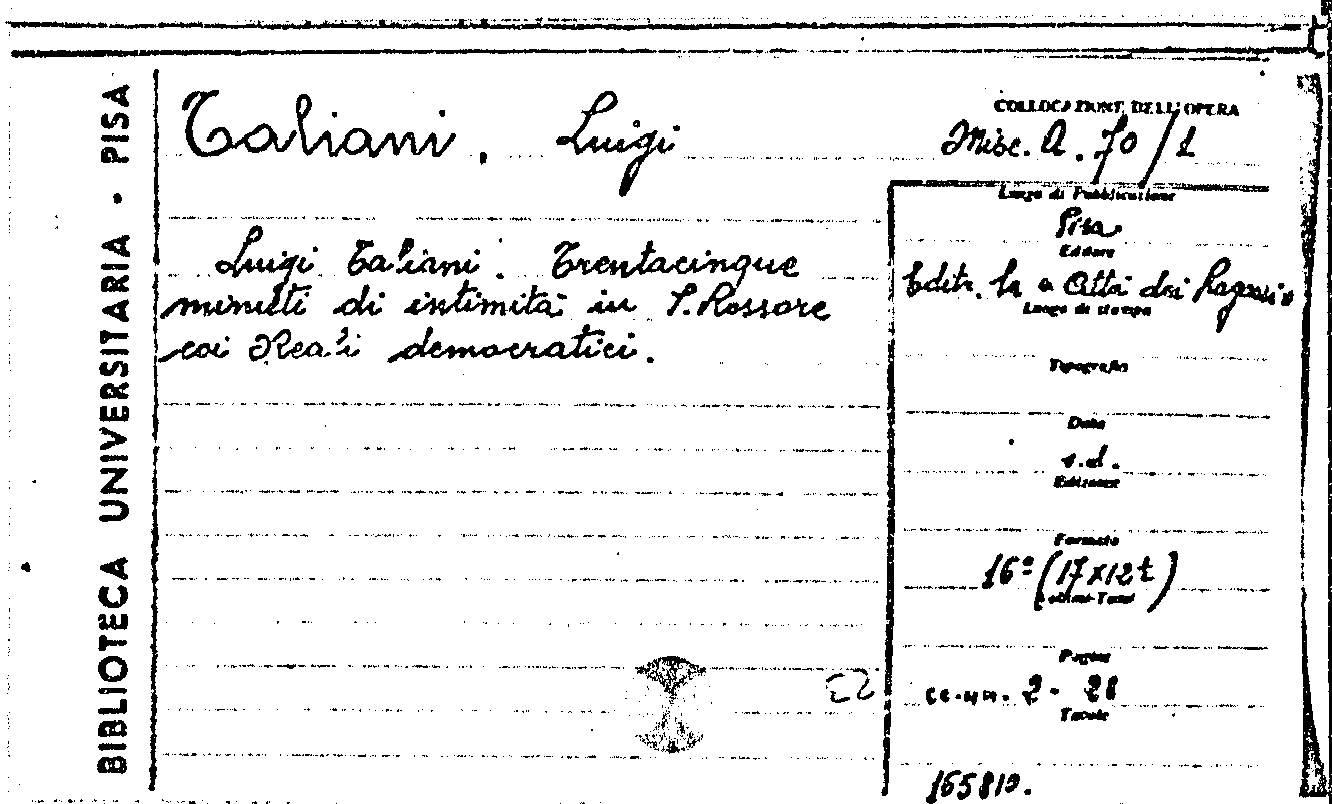 BIBLIOTECA UNIVERSITARIA • PISA
Taliani, Luigi
COLLOCAZIONE DELL'OPERA
Misc. A. 70/1
Luigi Taliani. Trentacinque
minuti di intimità in S. Rossore
coi Reali democratici.
Luogo di Pubblicazione
Pisa
Editore
Editr. la Città dei Ragazzi
Luogo di stampa
Tipografia
Data
s.d.
Edizione
Formato
16º (17x12
Volumi-Tomi
Pagine
cc.nn. 2 - 28
Tavole
165810.